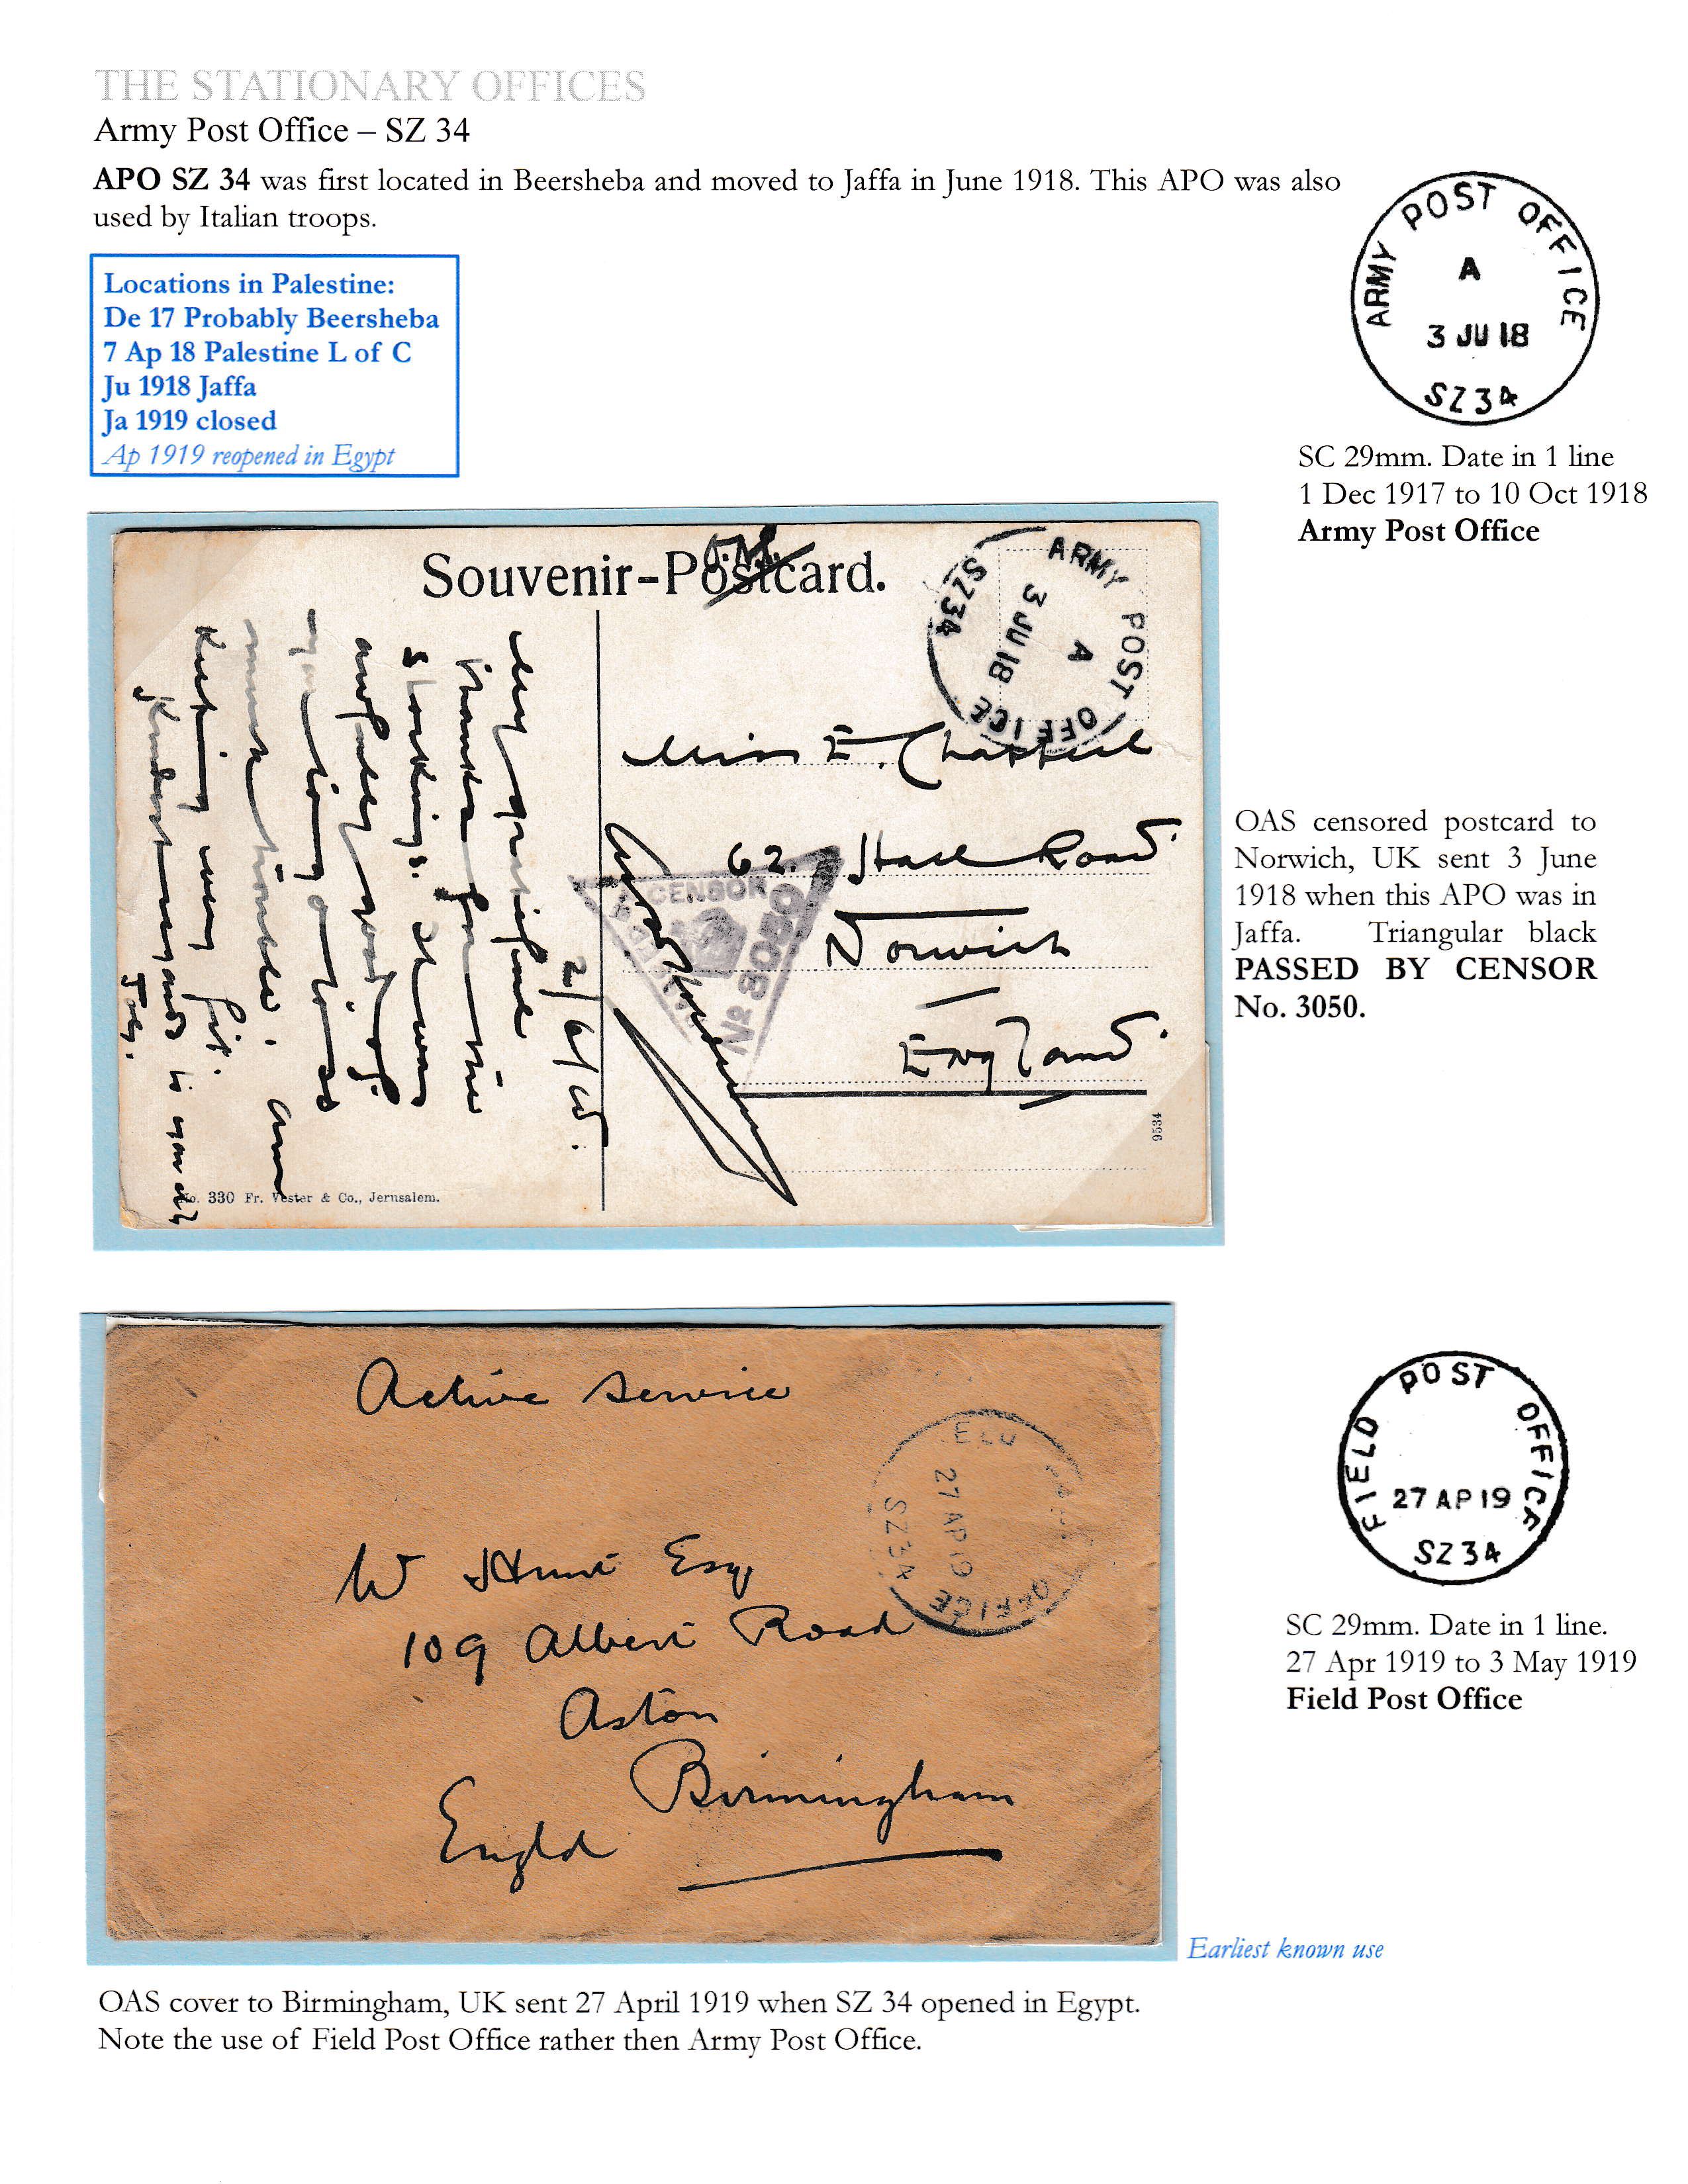 THE STATIONARY OFFICES
Army Post Office – SZ 34
APO SZ 34 was first located in Beersheba and moved to Jaffa in June 1918. This APO was also
used by Italian troops.
Locations in Palestine:
De 17 Probably Beersheba
7 Ap 18 Palestine L of C
Ju 1918 Jaffa
Ja 1919 closed
Ap 1919 reopened in Egypt
ARMY POST OFFICE
A
3 JU 18
SZ34
SC 29mm. Date in 1 line
1 Dec 1917 to 10 Oct 1918
Army Post Office
Souvenir-Postcard.
ARMY POST OFFICE
A
3 JU 18
SZ34
2/6/18.
Very grateful
thanks for the
stockings. It was
awfully good of
you to go to so
much trouble. Am
Keeping very fit.
Kindest regards to you all
Toby.
Miss E. Chappell
62. Hall Road
Norwich
England
CENSOR
No 3050
9534
No. 330 Fr. Vester & Co., Jerusalem.
OAS censored postcard to
Norwich, UK sent 3 June
1918 when this APO was in
Jaffa. Triangular black
PASSED BY CENSOR
No. 3050.
Active Service
27 AP 19
OFFICE
SZ34
W Hunt Esq
109 Albert Road
Aston
Birmingham
Engld
FIELD POST OFFICE
27 AP 19
SZ34
SC 29mm. Date in 1 line.
27 Apr 1919 to 3 May 1919
Field Post Office
Earliest known use
OAS cover to Birmingham, UK sent 27 April 1919 when SZ 34 opened in Egypt.
Note the use of Field Post Office rather then Army Post Office.